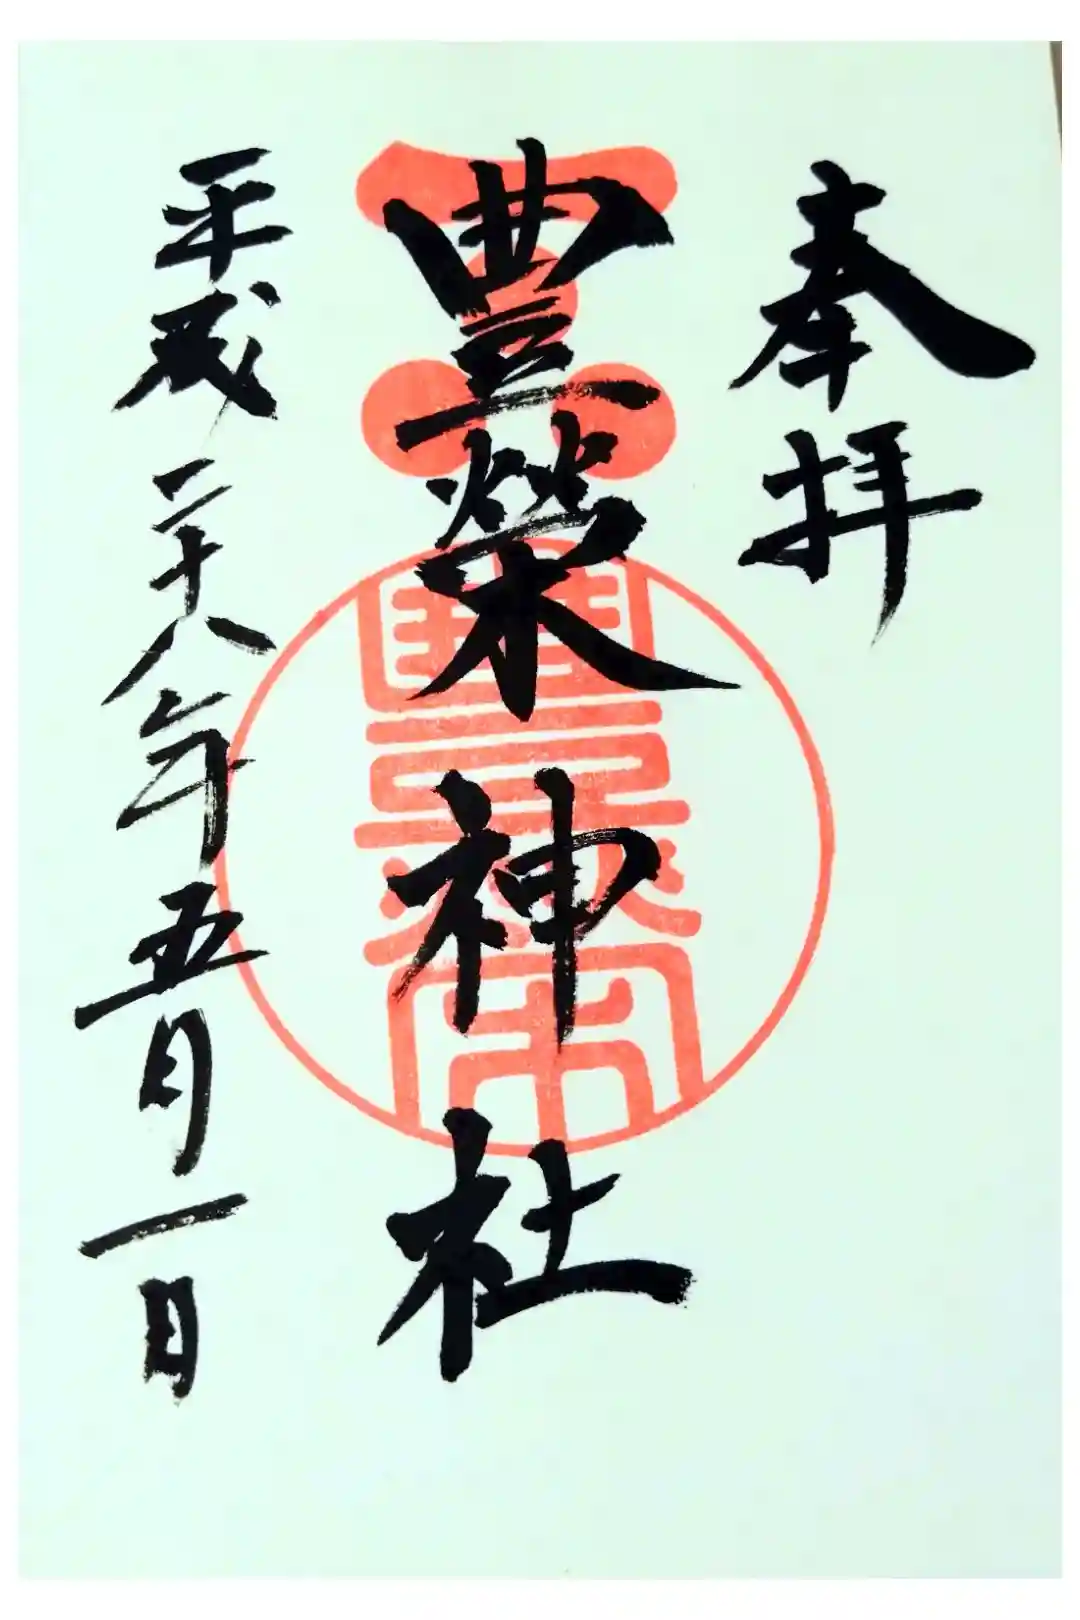 奉拝
豊榮神社
平成二十八年五月一日